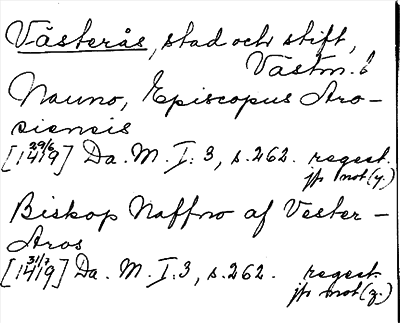 Västerås, stad och stift,
Västm. l
Nauno, Episcopus Aro-
siensis
[29/6 1419] Da. M. I: 3, s. 262. regest.
jfr not (y.)
Biskop Naffno af Vester-
Aros
[31/7 1419] Da. M. I. 3, s. 262. regest.
jfr not (z.)